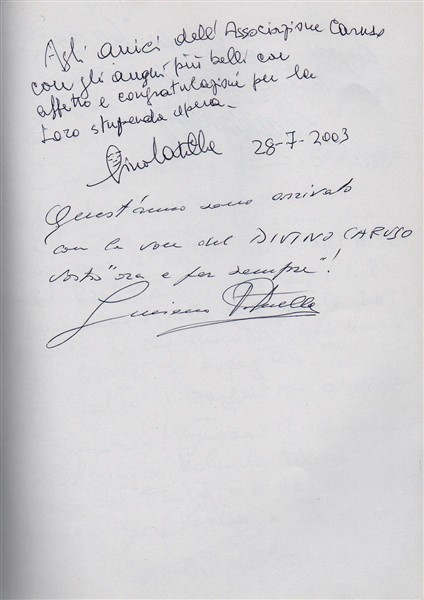 Agli amici dell'Associazione Caruso
con gli auguri più belli con
affetto e congratulazioni per la
loro stupenda opera.
28-7-2003
Quest'anno sono arrivato
con la voce del DIVINO CARUSO
vostro "ora e per sempre"!
Luciano